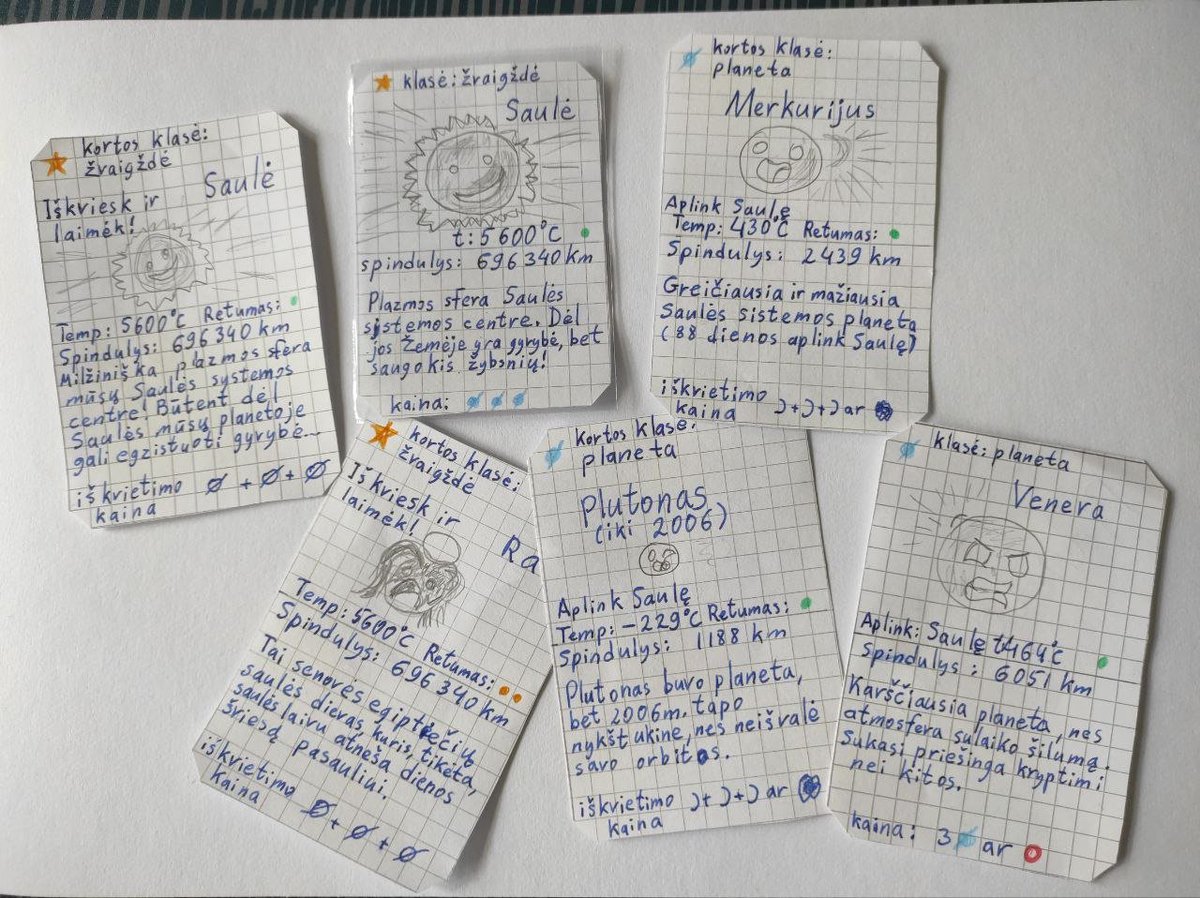 kortos klasė:
žvraigždė
Saulė
Iškviesk ir
laimėk!
Temp: 5600°C Retumas:
Spindulys: 696 340 km
Milžiniška plazmos sfera
mūsų Saulės systemos
centre! Būtent dėl
Saulės mūsų planetoje
gali egzistuoti gyrybė...
iškvietimo Ø + Ø + Ø
kaina
klasė: žvraigždė
Saulė
t: 5600°C
spindulys: 696 340 km
Plazmos sfera Saulės
systemos centre. Dėl
jos Žemėje yra gyrybė, bet
saugokis žybsnių!
kaina:
kortos klasė:
planeta
Merkurijus
Aplink Saulę
Temp: 430°C Retumas:
Spindulys: 2439 km
Greičiausia ir mažiausia
Saulės sistemos planeta
(88 dienos aplink Saulę)
iškvietimo
kaina ☽+☽+☽ ar
kortos klasė:
žvraigždė
Iškviesk ir
laimėk!
Ra
Temp: 5600°C Retumas:
Spindulys: 696 340 km
Tai senovės egiptiečių
saulės dievas, kuris, tikėta,
saulės laivu atneša dienos
šviesą pasauliui.
iškvietimo Ø + Ø + Ø
kaina
kortos klasė:
planeta
Plutonas
(iki 2006)
Aplink Saulę
Temp: -229°C Retumas:
Spindulys: 1188 km
Plutonas buvo planeta,
bet 2006m. tapo
nykštukine, nes neišvalė
savo orbitos.
iškvietimo ☽+☽+☽ ar
kaina
klasė: planeta
Venera
Aplink: Saulę t:464°C
Spindulys: 6051 km
Karščiausia planeta, nes
atmosfera sulaiko šilumą.
Sukasi priešinga kryptimi
nei kitos.
kaina: 3 ar